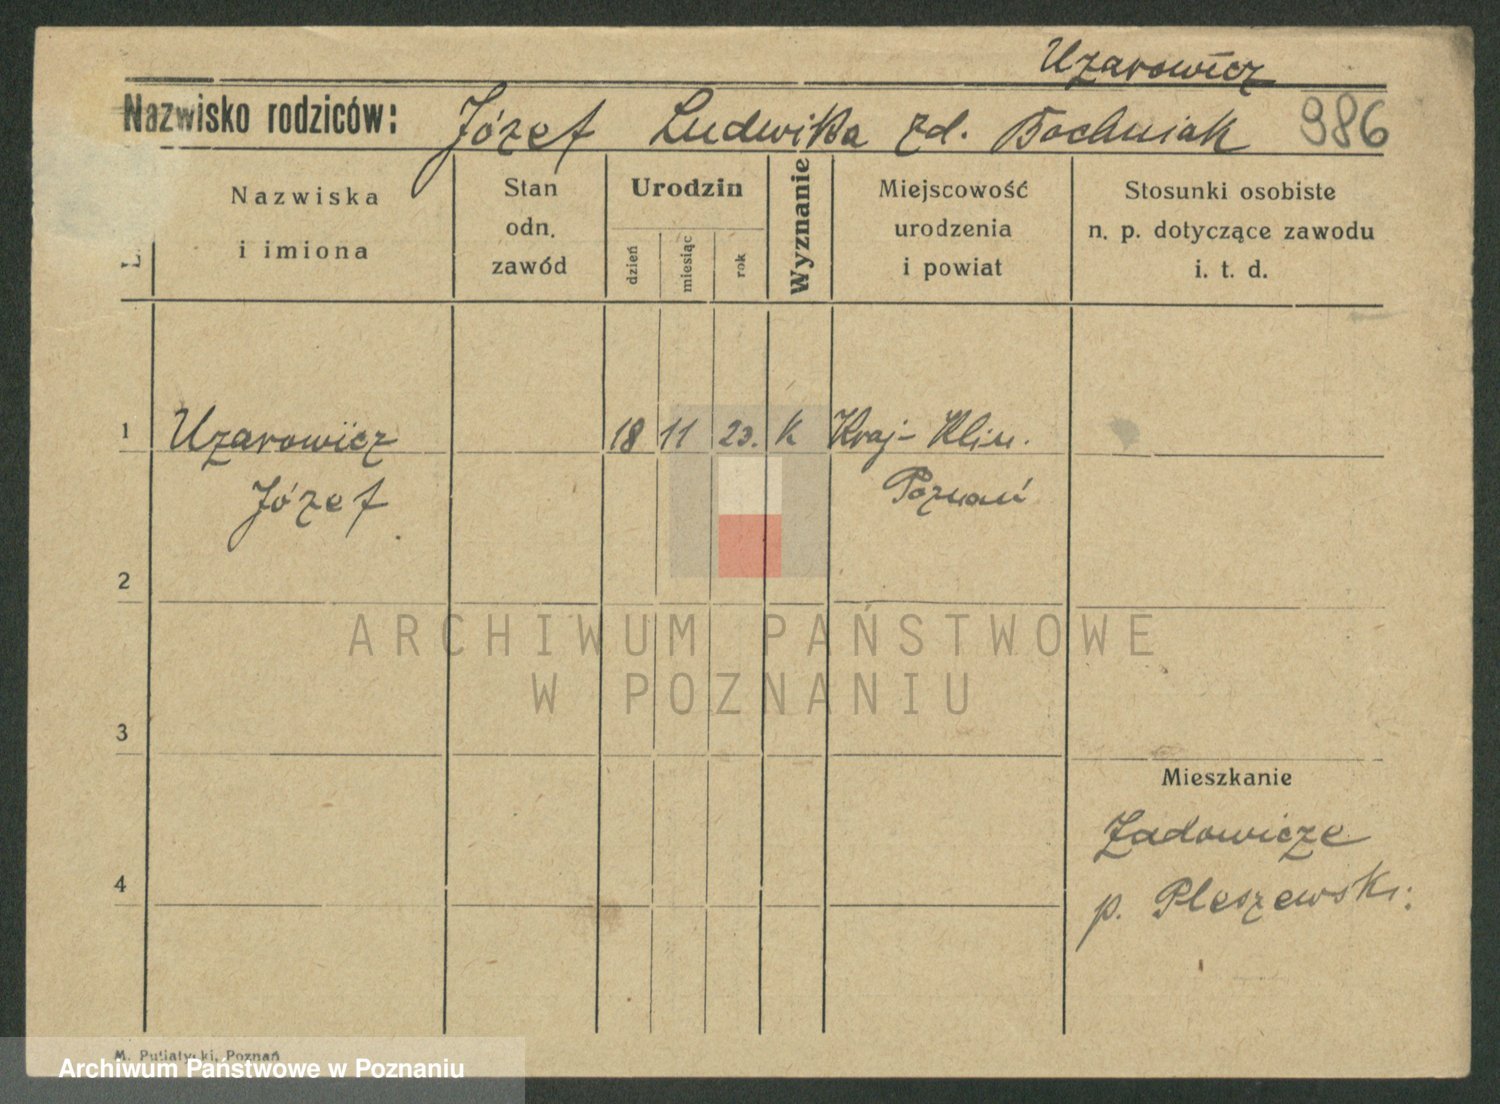 Uzarowicz
Nazwisko rodziców: Józef Ludwika zd. Bochniak 986
Nazwiska
i imiona
Stan
odn.
zawód
Urodzin
dzień
miesiąc
rok
Wyznanie
Miejscowość
urodzenia
i powiat
Stosunki osobiste
n. p. dotyczące zawodu
i. t. d.
1 Uzarowicz 18 11 23. K Kraj- Klin.
Józef Poznań
2
3
4
Mieszkanie
Zadowicze
p. Pleszewski.
ARCHIWUM PAŃSTWOWE
W POZNANIU
M. Putiatycki, Poznań
Archiwum Państwowe w Poznaniu